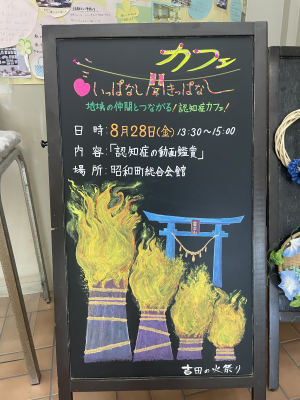 カフェ
いっぱなし聞きっぱなし
地域の仲間とつながる！認知症カフェ！
日 時：8月28日(金) 13:30～15:00
内 容：「認知症の動画鑑賞」
場 所：昭和町総合会館
吉田の火祭り